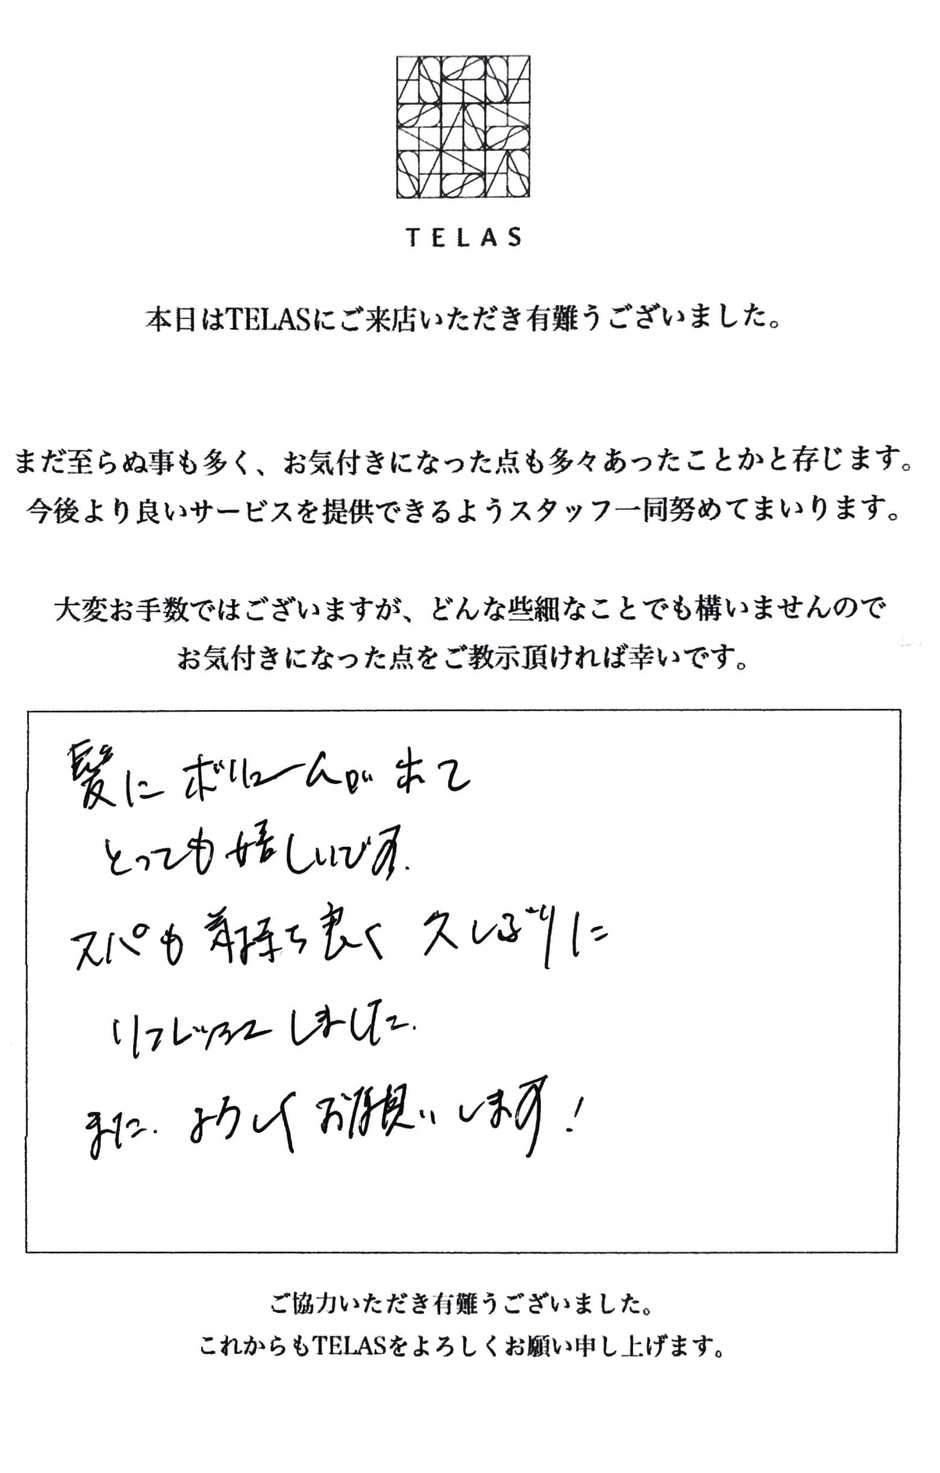 TELAS
本日はTELASにご来店いただき有難うございました。
まだ至らぬ事も多く、お気付きになった点も多々あったことかと存じます。
今後より良いサービスを提供できるようスタッフ一同努めてまいります。
大変お手数ではございますが、どんな些細なことでも構いませんので
お気付きになった点をご教示頂ければ幸いです。
髪にボリュームが出て
とっても嬉しいです.
スパも気持ち良く 久しぶりに
リフレッシュしました.
また. よろしくお願いします!
ご協力いただき有難うございました。
これからもTELASをよろしくお願い申し上げます。